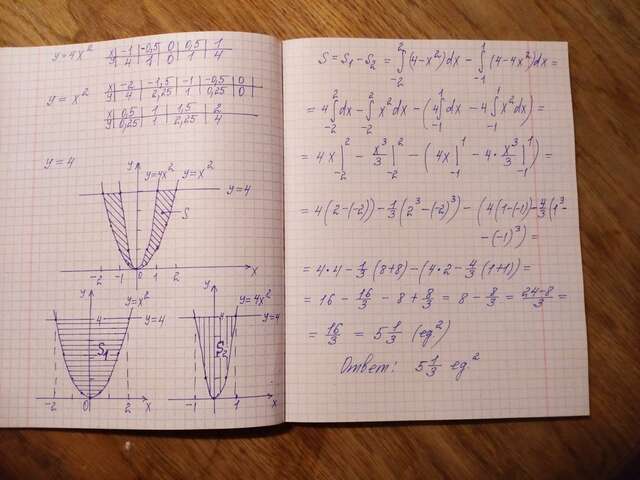 y=4x²
x | -1 | -0,5 | 0 | 0,5 | 1
y | 4 | 1 | 0 | 1 | 4
y=x²
x | -2 | -1,5 | -1 | -0,5 | 0
y | 4 | 2,25 | 1 | 0,25 | 0
x | 0,5 | 1 | 1,5 | 2
y | 0,25 | 1 | 2,25 | 4
y=4
y
y=4x²
y=x²
y=4
S
-2 -1 0 1 2 x
y
y=x²
4
y=4
S₁
-2 0 2 x
y
y=4x²
4
y=4
S₂
-1 0 1 x
S = S₁ - S₂ = ∫₋₂² (4-x²)dx - ∫₋₁¹ (4-4x²)dx =
= 4∫₋₂² dx - ∫₋₂² x²dx - (4∫₋₁¹ dx - 4∫₋₁¹ x²dx) =
= 4x|₋₂² - x³/3|₋₂² - (4x|₋₁¹ - 4·x³/3|₋₁¹) =
= 4(2-(-2)) - 1/3(2³-(-2)³) - (4(1-(-1)) - 4/3(1³-
-(-1)³) =
= 4·4 - 1/3(8+8) - (4·2 - 4/3(1+1)) =
= 16 - 16/3 - 8 + 8/3 = 8 - 8/3 = 24-8/3 =
= 16/3 = 5 1/3 (ед²)
Ответ: 5 1/3 ед²